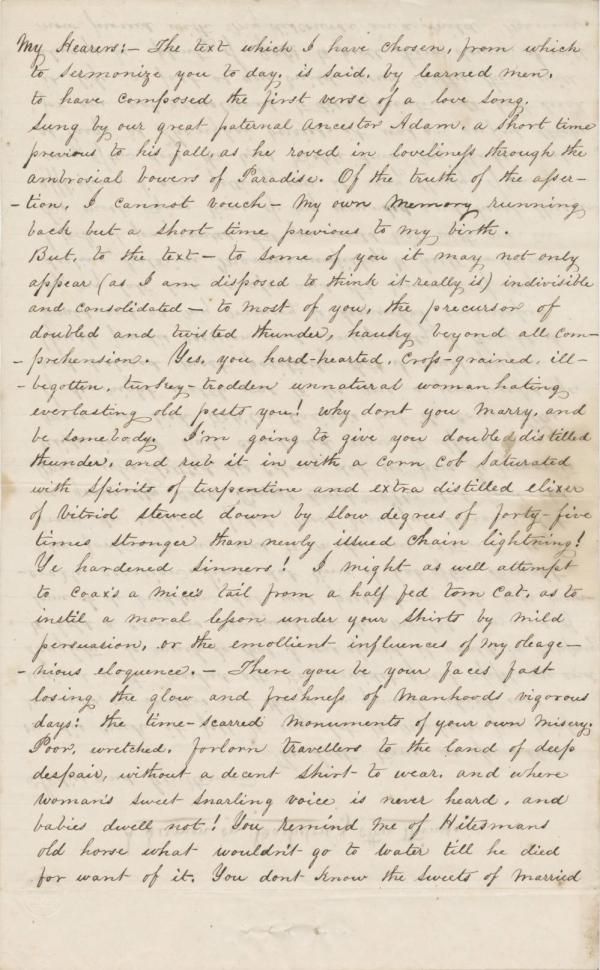 My Hearers:- The text which I have chosen, from which
to sermonize you to day, is said, by learned men,
to have composed the first verse of a love song,
sung by our great paternal ancestor Adam, a short time
previous to his fall, as he roved in loveliness through the
ambrosial bowers of Paradise. Of the truth of the asser-
-tion, I cannot vouch - my own memory running
back but a short time previous to my birth.
But, to the text - to some of you it may not only
appear (as I am disposed to think it really is) indivisible
and consolidated - to most of you, the precursor of
doubled and twisted thunder, hanky beyond all com-
-prehension. Yes, you hard-hearted, cross-grained, ill-
-begotten, turkey-trodden unnatural womanhating
everlasting old pests you! why dont you marry, and
be somebody. I'm going to give you doubled distilled
thunder, and rub it in with a corn cob saturated
with spirits of turpentine and extra distilled elixer
of vitriol stewed down by slow degrees of forty-five
times stronger than newly issued chain lightning!
Ye hardened sinners! I might as well attempt
to coax a mice's tail from a half fed tom cat, as to
instil a moral lesson under your shirts by mild
persuasion, or the emollient influences of my oleage-
-nious eloquence. - There you be your faces fast
losing the glow and freshness of manhoods vigorous
days: the time-scarred monuments of your own misery.
Poor, wretched, forlorn travellers to the land of deep
despair, without a decent shirt to wear, and where
woman's sweet snarling voice is never heard, and
babies dwell not! You remind me of Hitesmans
old horse what wouldn't go to water till he died
for want of it. You dont know the sweets of married